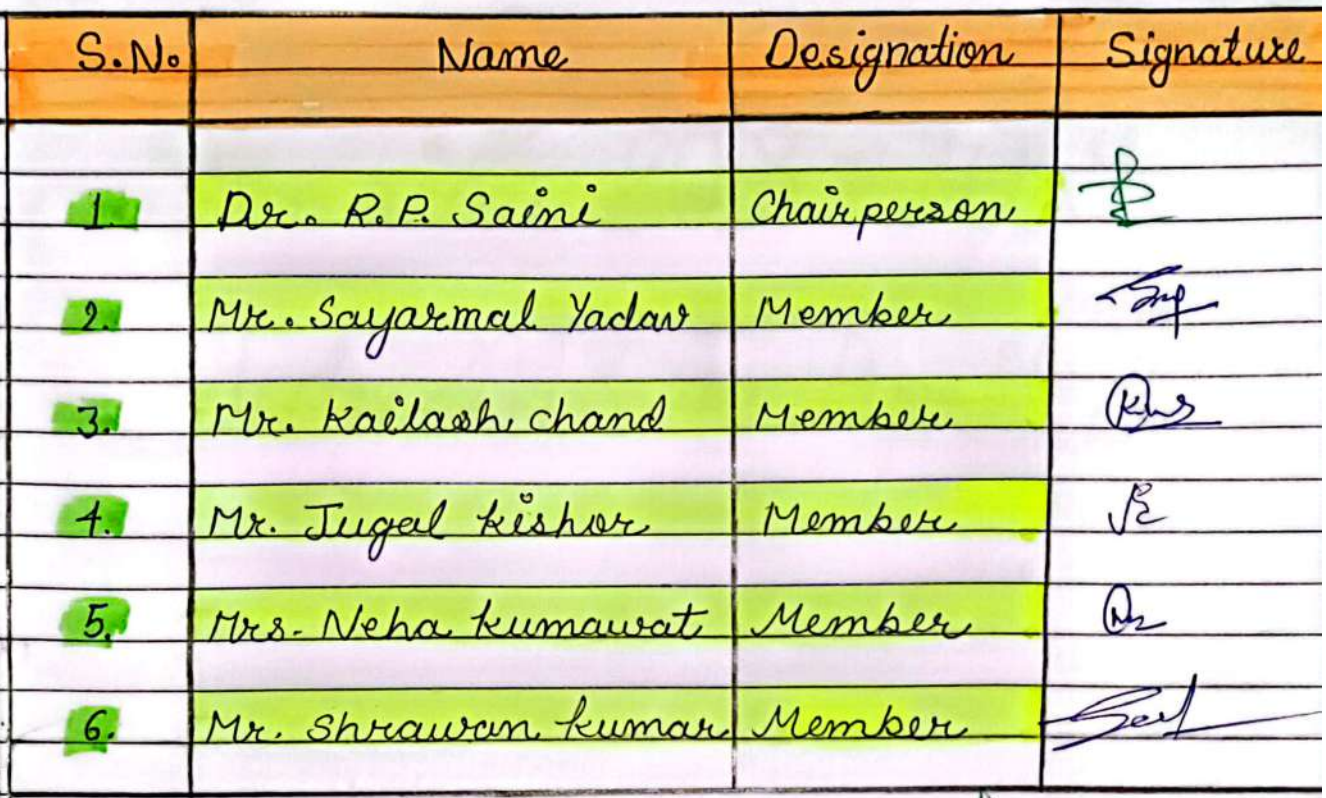 S.No Name Designation Signature
1. Dr. R.P. Saini Chairperson
2. Mr. Sayarmal Yadav Member
3. Mr. Kailash chand Member
4. Mr. Jugal kishor Member
5. Mrs. Neha kumawat Member
6. Mr. Shrawan kumar Member